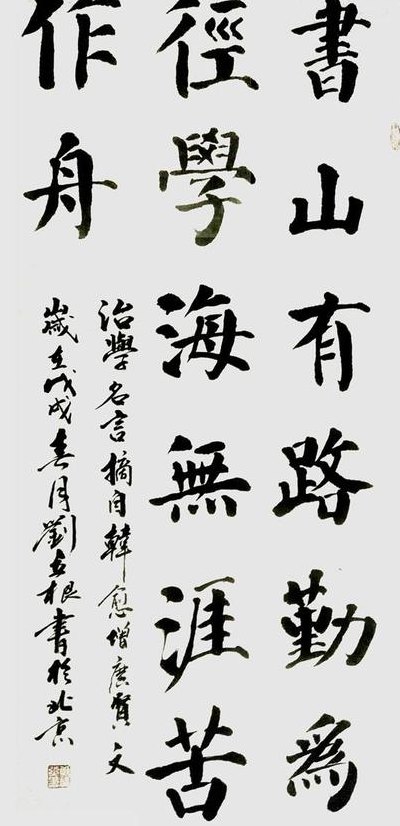 書山有路勤為
徑學海無涯苦
作舟
治學名言摘自韓愈增廣賢文
歲在戊戌春月劉立根書於北京